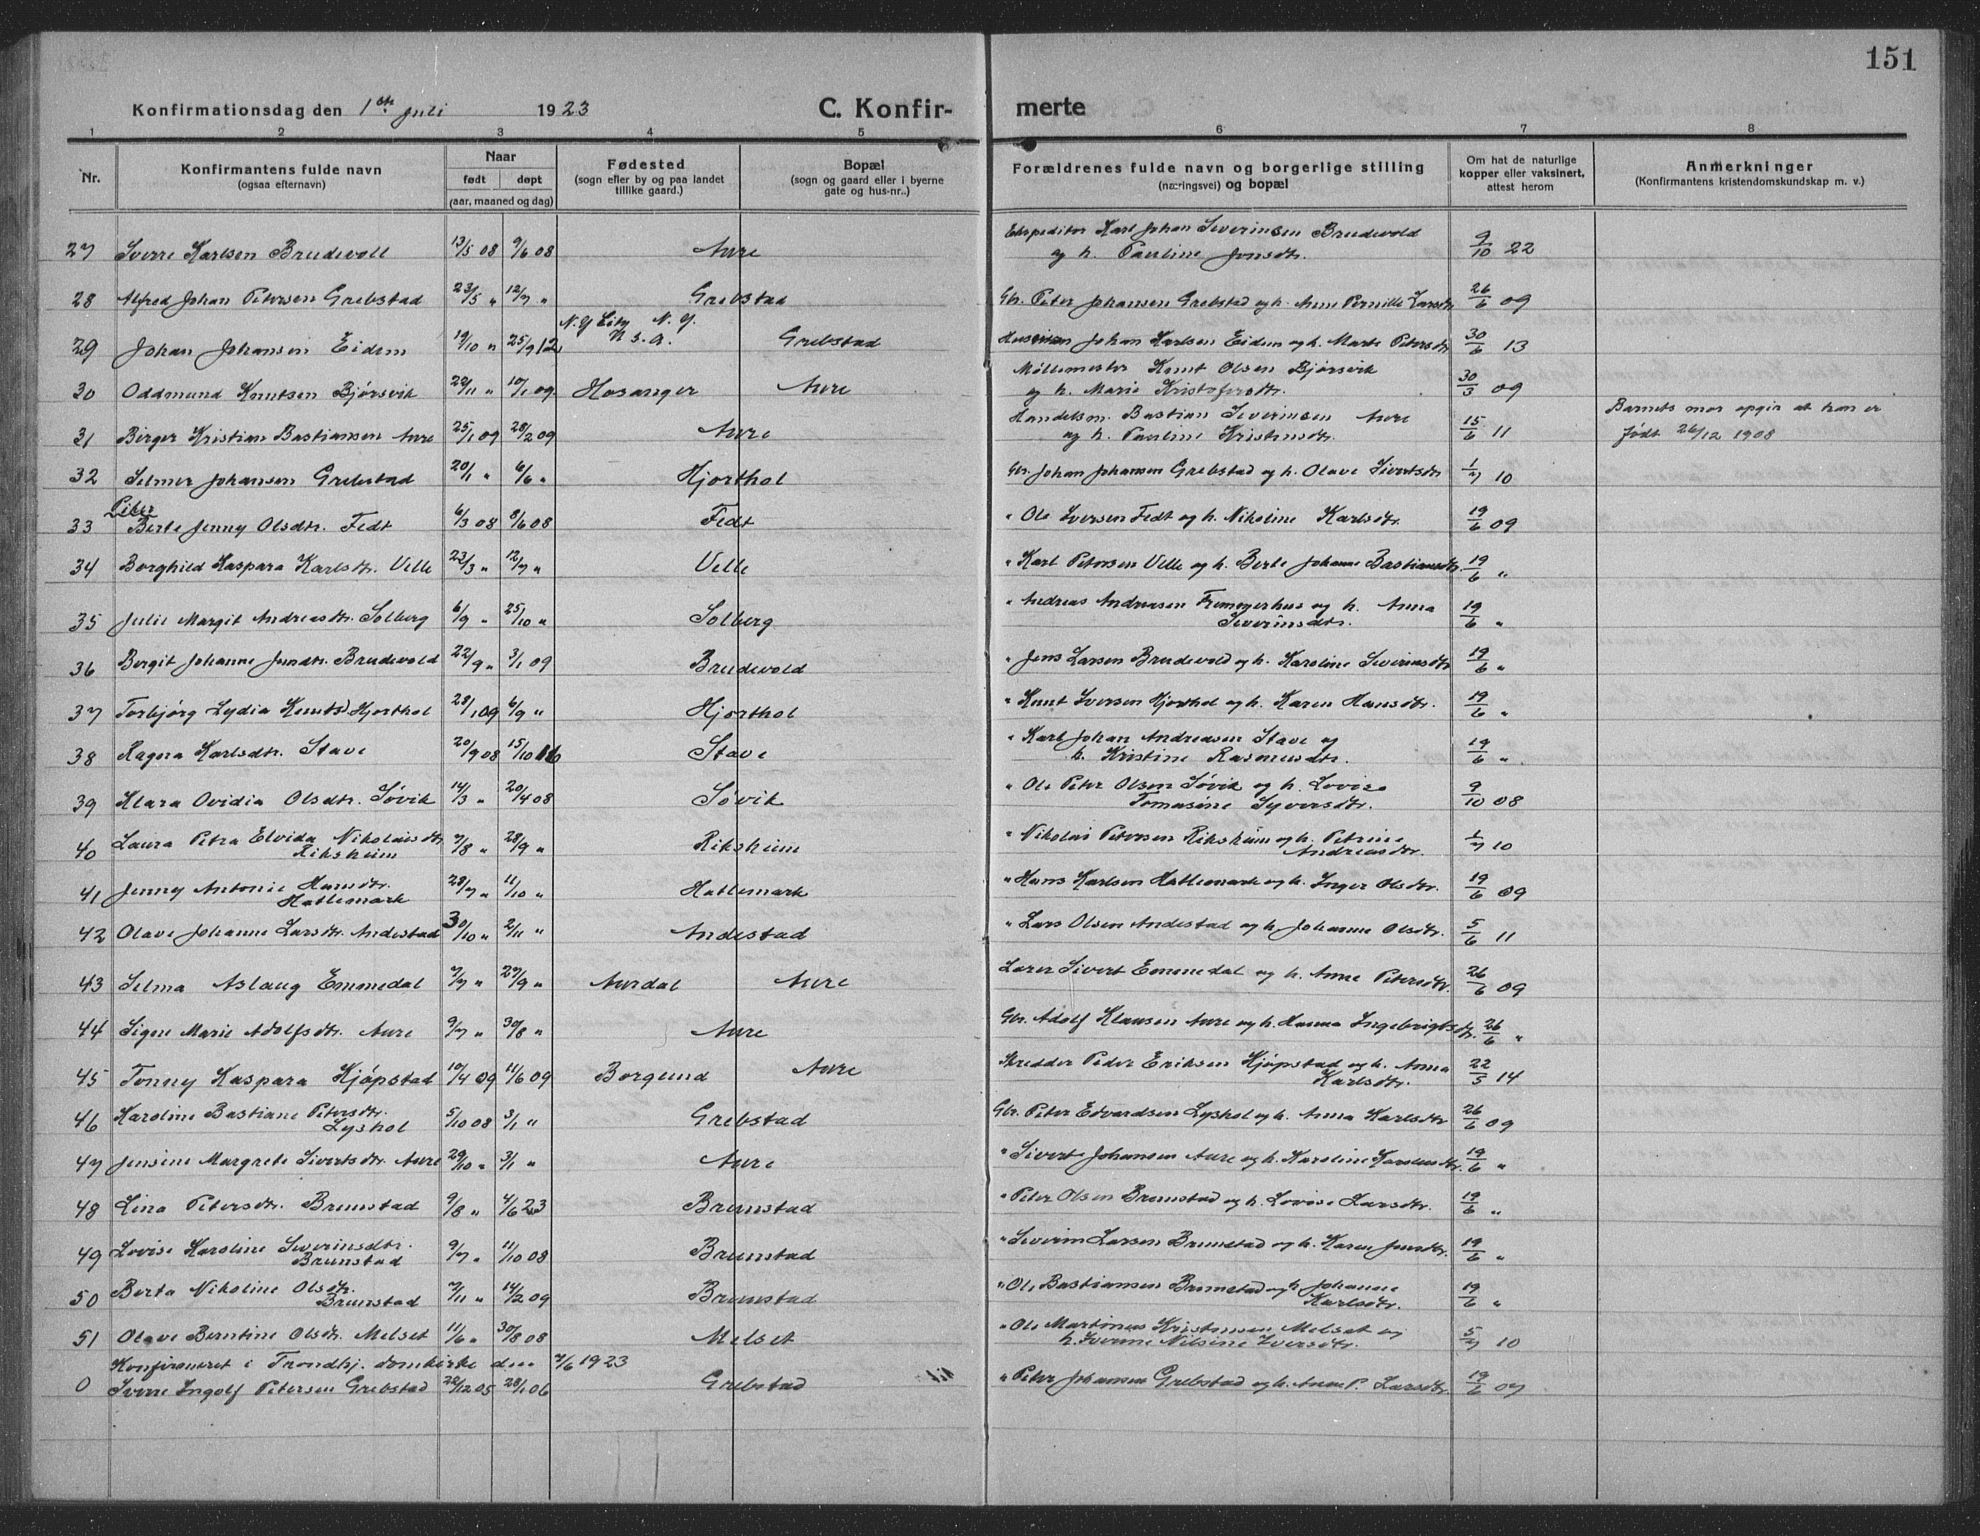 151
Konfirmationsdag den 1ste Juli 1923 C. Konfir- merte
1 2 3 4 5 6 7 8
Nr. Konfirmantens fulde navn (ogsaa efternavn) Naar født døpt (aar, maaned og dag) Fødested (sogn efter by og paa landet tillike gaard.) Bopæl (sogn og gaard eller i byerne gate og hus-nr..) Forældrenes fulde navn og borgerlige stilling (næringsvei) og bopæl Om hat de naturlige kopper eller vaksinert, attest herom Anmerkninger (Konfirmantens kristendomskundskap m. v.)
27 Sverre Karlsen Brudevoll 13/5 08 9/6 08 Aure Ekspeditør Karl Johan Severinsen Brudevold
og h. Pauline Jonsdtr. 9/10 22
28 Alfred Johan Petersen Grebstad 23/5 " 12/7 " Grebstad Gbr. Peter Johansen Grebstad og h. Anne Pernille Larsdtr 26/6 09
29 Johan Johansen Eidem 19/10 " 25/9 12 N.Y City N.Y. U.S.A. Grebstad Johan Karlsen Eidem og h. Marte Petersdtr 30/6 13
30 Oddmund Knutsen Bjørsvik 22/11 " 10/1 09 Hosanger Aure Møllemester Knut Olsen Bjørsvik
og h. Marie Kristofersdtr. 30/3 09
31 Birger Kristian Bastiansen Aure 25/1 09 28/2 09 Aure Handelsm. Bastian Severinsen Aure
og h. Pauline Kristinsdtr. 15/6 11 Barnets mor opgir at han er
født 26/12 1908
32 Selmer Johansen Grebstad 20/1 " 6/6 " Hjorthol Gbr. Johan Johansen Grebstad og h. Olave Sivertsdtr 1/7 10
33 Berte Jenny Olsdtr. Fedt 6/3 08 8/6 08 Fedt " Ole Iversen Fedt og h. Nikoline Karlsdtr. 19/6 09
34 Borghild Kaspara Karlsdtr. Velle 23/3 " 12/7 " Velle " Karl Petersen Velle og h. Berte Johanne Bastiansdtr. 19/6 "
35 Julie Margit Andreasdtr. Solberg 6/9 " 25/10 " Solberg " Andreas Andreasen Fremmerhus og h. Anna
Severinsdtr. 19/6 "
36 Bergit Johanne Jensdtr. Brudevold 22/9 " 3/1 09 Brudevold " Jens Larsen Brudevold og h. Karoline Severinsdtr 19/6 "
37 Torbjørg Lydia Knutsd Hjorthol 28/1 09 6/9 " Hjorthol " Knut Iversen Hjorthol og h. Karen Hansdtr. 19/6 "
38 Ragna Karlsdtr. Stave 20/9 08 15/10 16 Stave " Karl Johan Andreasen Stave og
h. Kristine Rasmusdtr. 19/6 "
39 Klara Ovidia Olsdtr. Søvik 14/3 " 20/4 08 Søvik " Ole Peter Olsen Søvik og h. Lovise
Tomasine Syversdtr. 9/10 08
40 Laura Petra Elvida Nikolaisdtr
Riksheim 7/8 " 28/9 " Riksheim " Nikolai Petersen Riksheim og h. Petrine
Andreasdtr. 1/7 10
41 Jenny Antonie Hansdtr.
Hatlemark 28/7 " 11/10 " Hatlemark " Hans Karlsen Hatlemark og h. Inger Olsdtr. 19/6 09
42 Olave Johanne Larsdtr. Andestad 30/10 " 2/11 " Andestad " Lars Olsen Andestad og h. Johanne Olsdtr. 5/6 11
43 Selma Aslaug Emmedal 7/7 " 27/9 " Aurdal Aure Lærer Sivert Emmedal og h. Anne Petersdtr. 26/6 09
44 Signe Marie Adolfsdtr. Aure 9/7 " 30/8 " Aure Gbr. Adolf Klausen Aure og h. Hanna Ingebrigtsdtr. 26/6 "
45 Tonny Kaspara Hjøpstad 10/4 09 11/6 09 Borgund Aure Skredder Peder Eriksen Hjøpstad og h. Anna
Karlsdtr. 22/5 14
46 Karoline Bastiane Petersdtr.
Lyshol 5/10 08 3/1 " Grebstad Gbr. Peter Edvardsen Lyshol og h. Anna Karlsdtr 26/6 09
47 Jensine Margrete Sivertsdtr. Aure 29/10 " 3/1 " Aure " Sivert Johansen Aure og h. Karoline Karolusdtr. 19/6 "
48 Lina Petersdtr. Brunstad 9/8 " 4/6 23 Brunstad " Peter Olsen Brunstad og h. Lovise Larsdtr. 19/6 "
49 Lovise Karoline Severinsdtr.
Brunstad 9/7 " 11/10 08 Brunstad " Severin Larsen Brunstad og h. Karen Jensdtr. 19/6 "
50 Berta Nikoline Olsdtr.
Brunstad 7/11 " 14/2 09 Brunstad " Ole Bastiansen Brunstad og h Johanne
Karlsdtr. 19/6 "
51 Olave Berntine Olsdtr. Melset 11/6 " 30/8 08 Melset " Ole Martinus Kristensen Melset og
h. Nilsine Iversdtr. 5/7 10
Konfirmeret i Trondhj. domkirke den 7/6 1923
0 Sverre Ingolf Petersen Grebstad 22/12 05 28/1 06 Grebstad " Peter Johansen Grebstad og h. Anne P. Larsdtr. 19/6 07